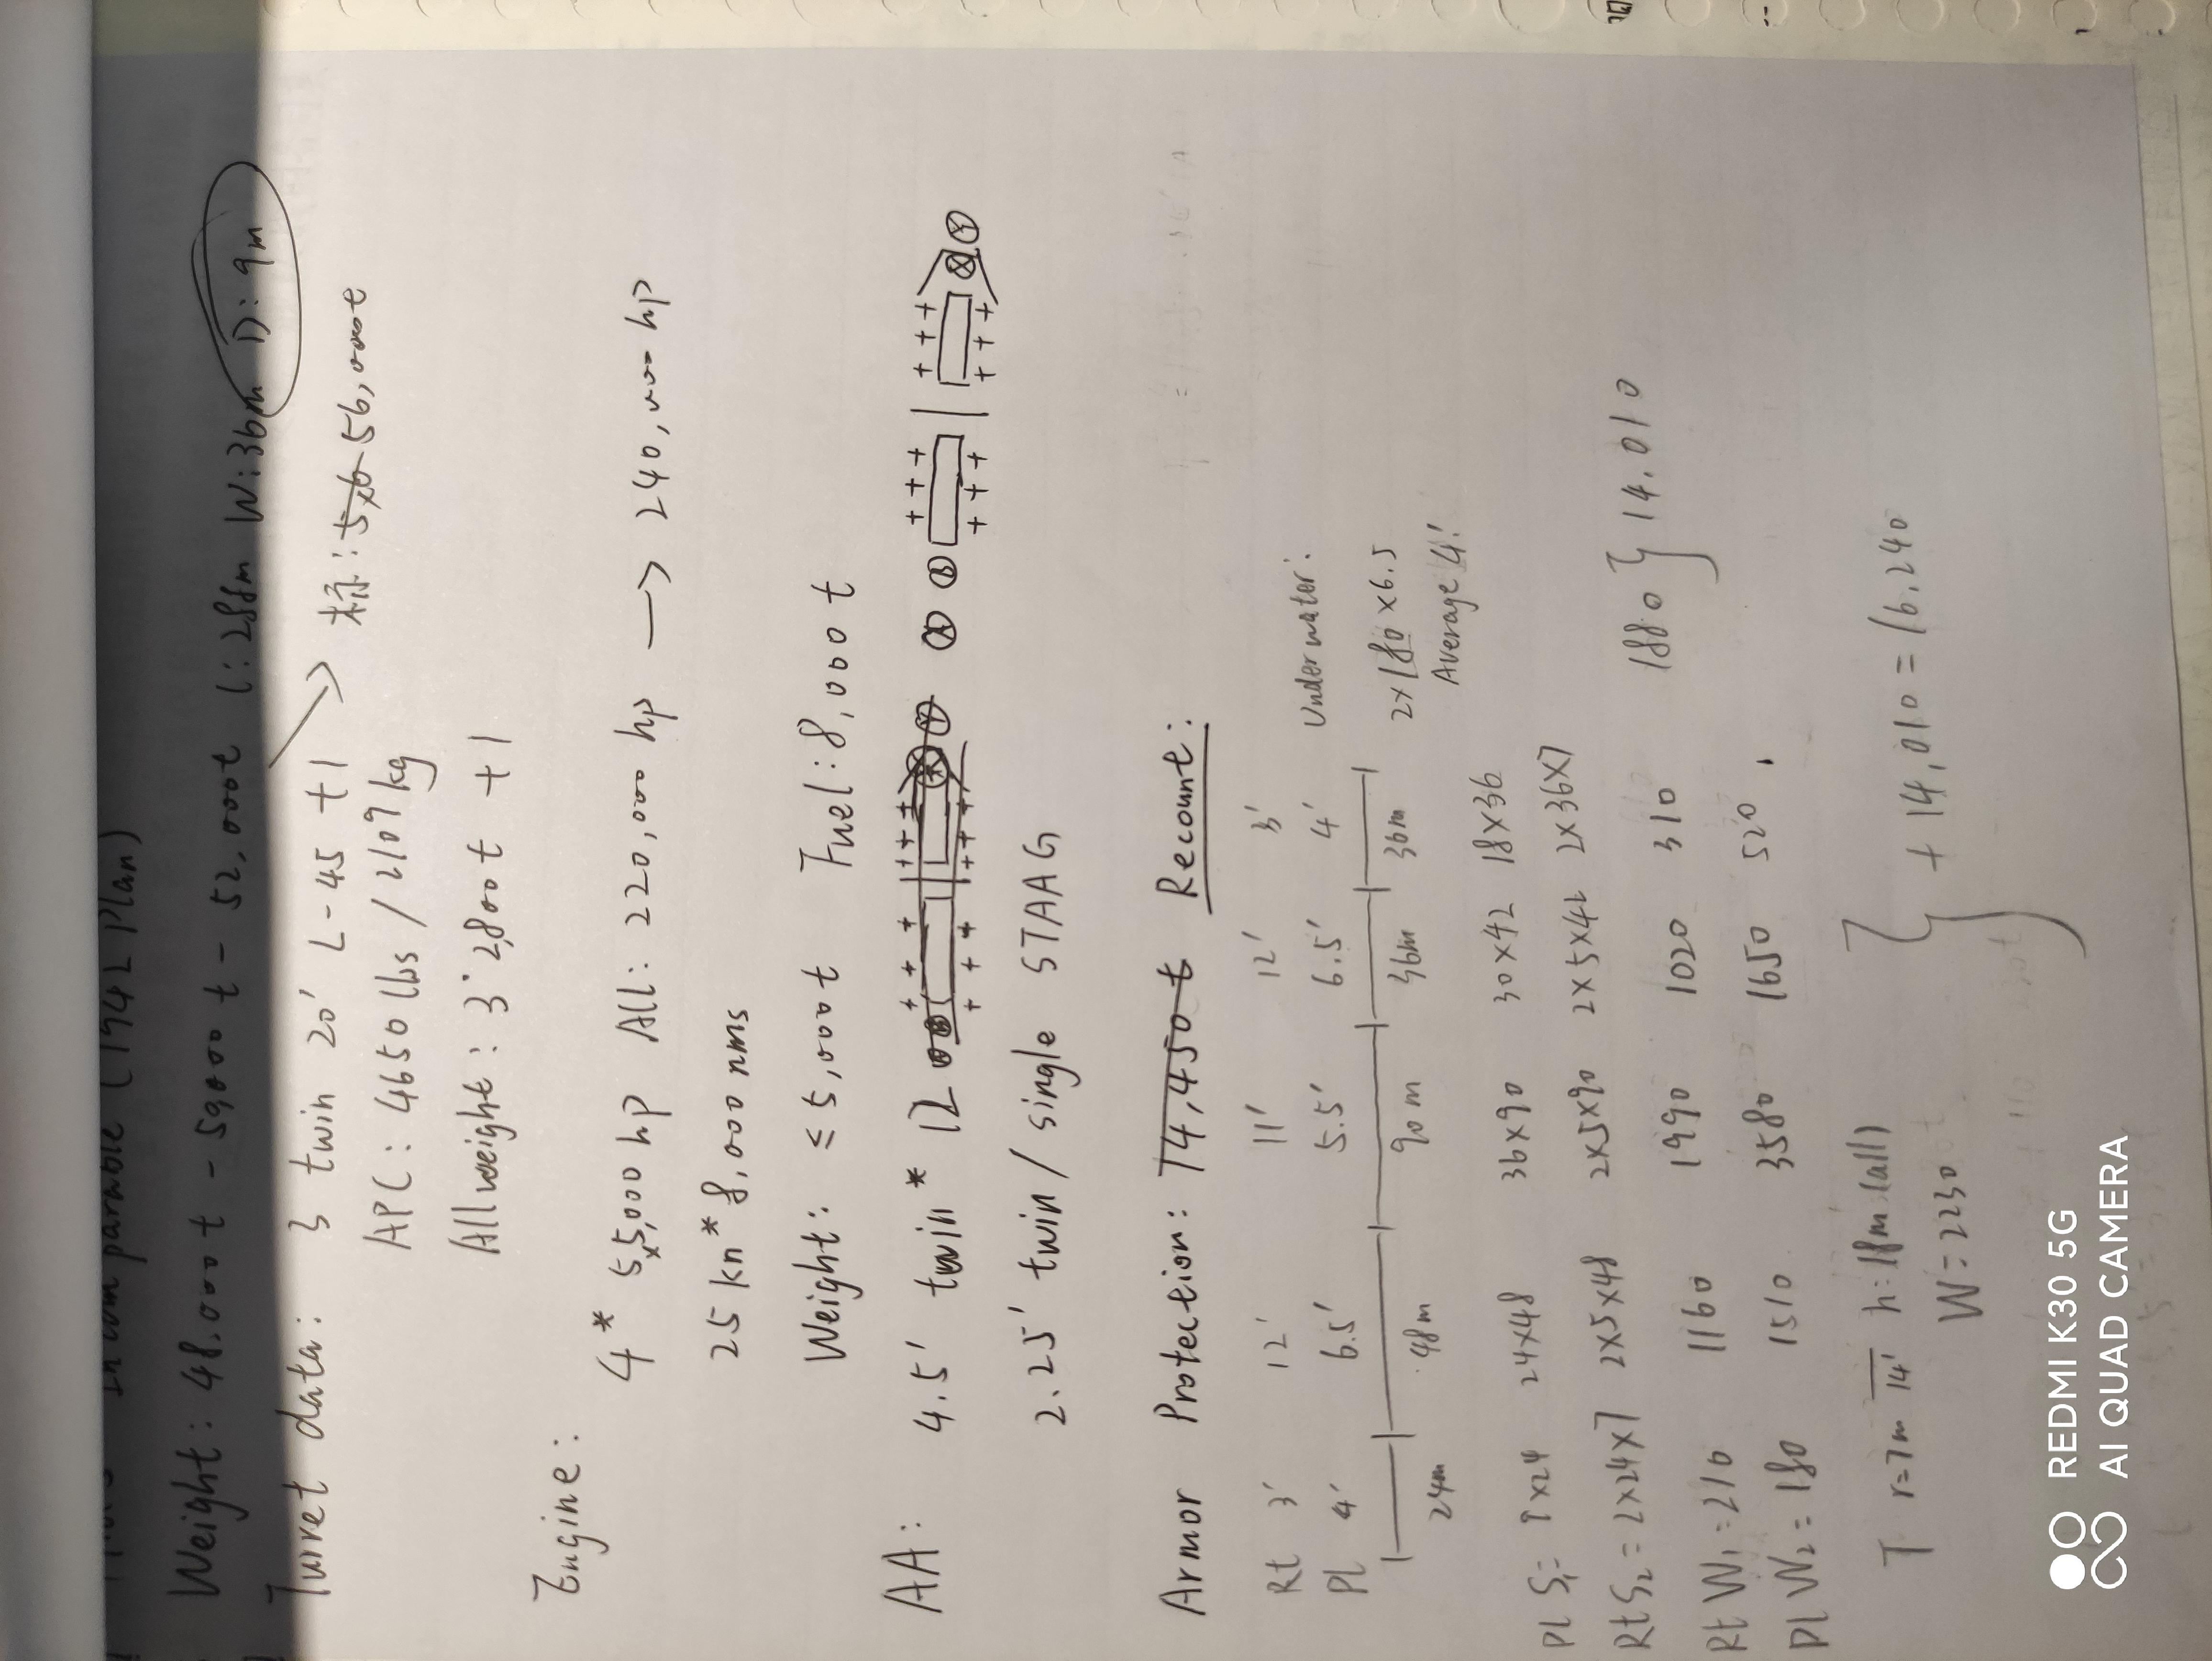 Incomparable (1942 Plan)
Weight: 48.000t - 59000t - 52,000t L: 288m W:36m D: 9m
Turret data: 3 twin 20' L-45 t1 → 标: 56,000t
APC: 4650 lbs / 2109 kg
All weight: 3* 2,800t t1
Engine:
4* 55,000 hp All: 220,000 hp → 240,000 hp
25 kn * 8,000 nms
Weight: ≤ 5,000t Fuel: 8,000t
AA: 4.5' twin * 12
2.25' twin / single STAAG
Armor Protection: 14,450t Recount:
Rt 3' 12' 11' 12' 3' Underwater:
Pl 4' 6.5' 5.5' 6.5' 4'
24m 48m 90m 36m 36m 2×180×6.5
Average 4'
Pl S₁= 24×48 36×90 30×42 18×36
Rt S₂= 2×24×7 2×5×48 2×5×90 2×5×42 2×36×7
Rt W₁=210 1160 1990 1020 310 1880 } 14.010
Pl W₂=180 1510 3580 1650 520
T r=7m 14' h=18m (all) } + 14,010 = 16.240
W=2230
REDMI K30 5G
AI QUAD CAMERA